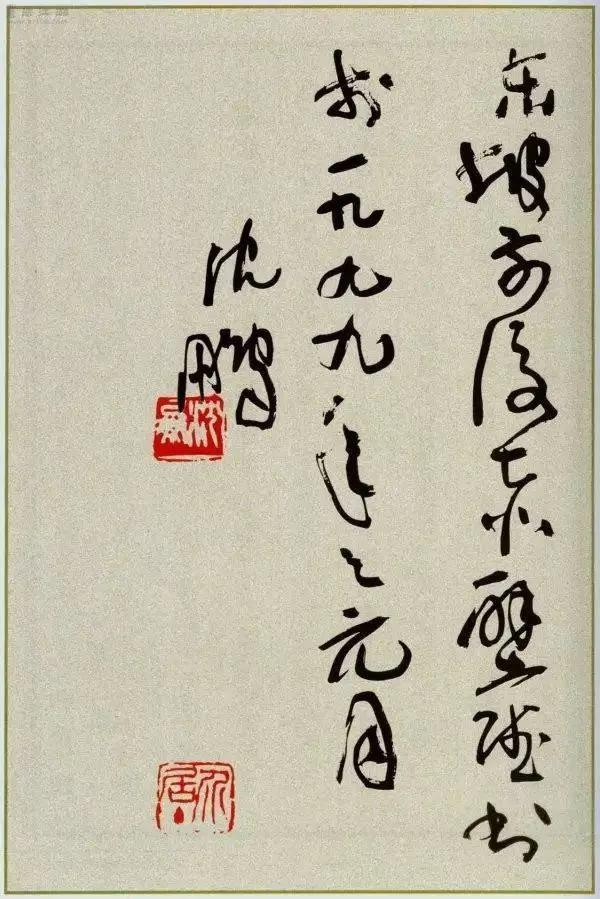 东坡前后赤壁赋书
于一九九九年之元月
沈鹏
沈鹏
介居